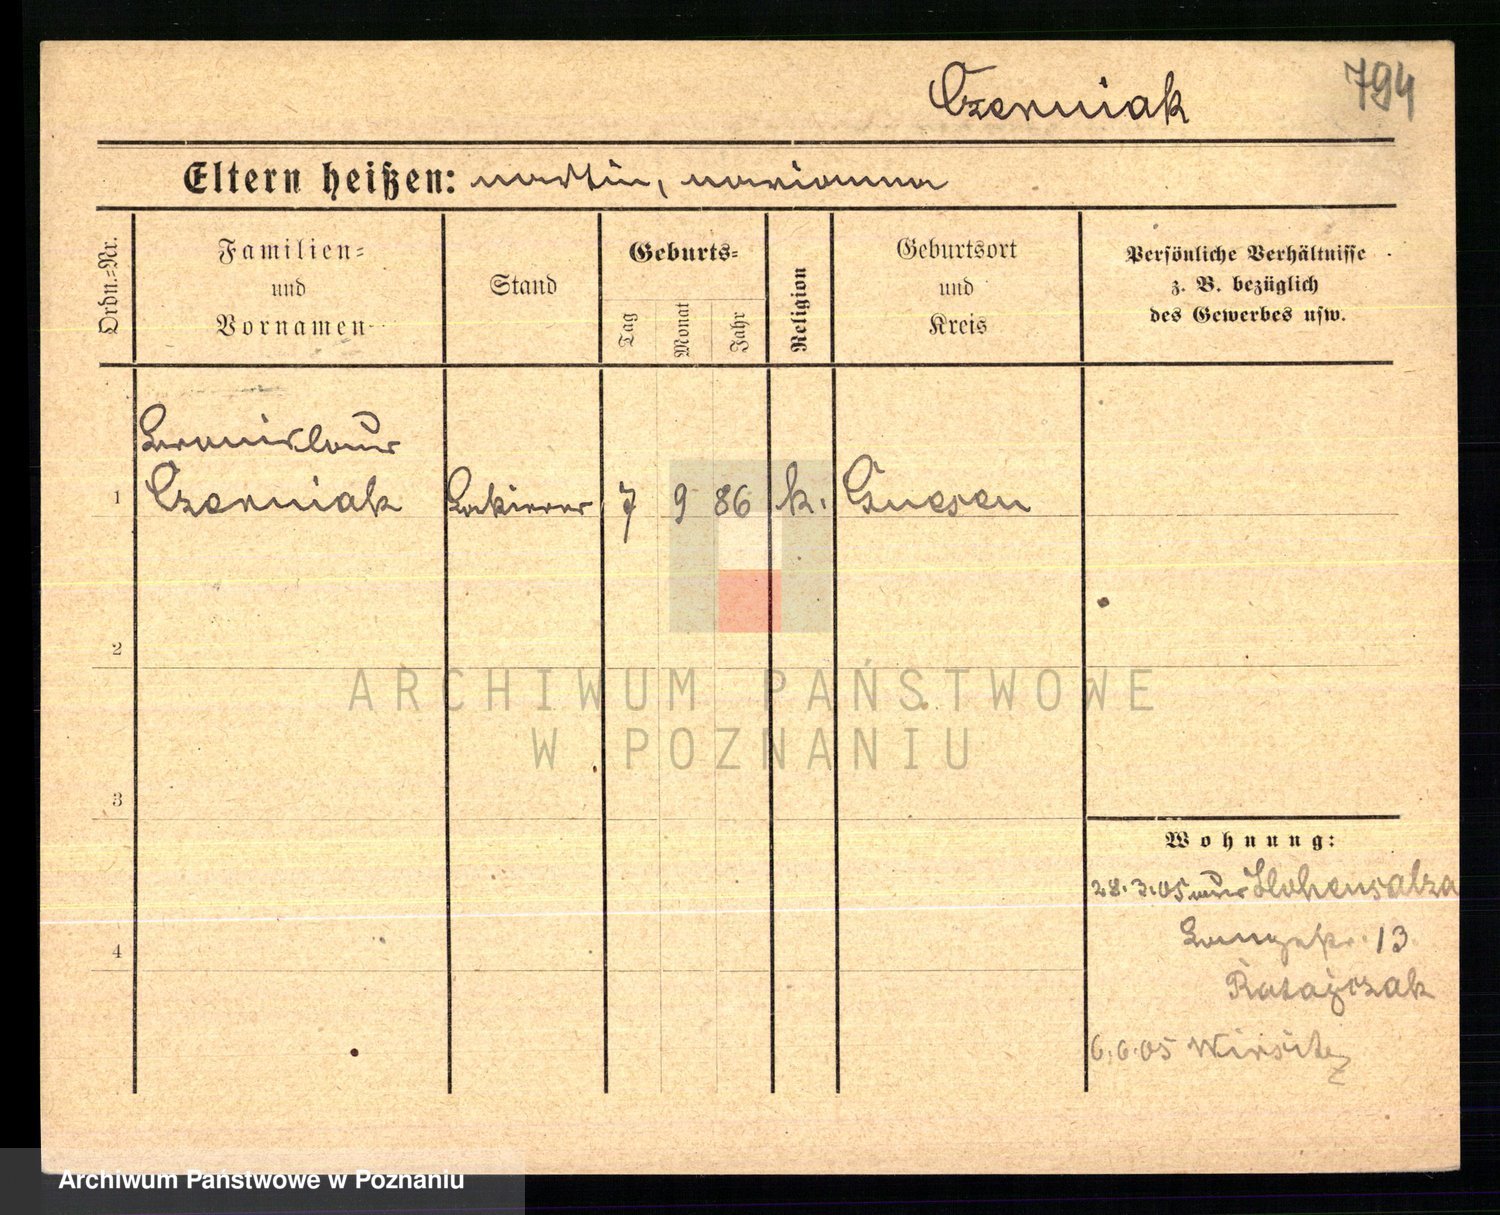 Czerniak
794
Eltern heißen: Martin, Marianna
Ordn.=Nr.
Familien=
und
Vornamen
Stand
Geburts=
Tag
Monat
Jahr
Religion
Geburtsort
und
Kreis
Persönliche Verhältnisse
z. B. bezüglich
des Gewerbes usw.
Bronislaus
1 Czerniak Lakierer 7 9 86 k. Gnesen
2
ARCHIWUM PAŃSTWOWE
W POZNANIU
3
Wohnung:
28.3.05 aus Hohensalza
4 Langestr. 13
Ratajczak
6.6.05 Wirsitz
Archiwum Państwowe w Poznaniu